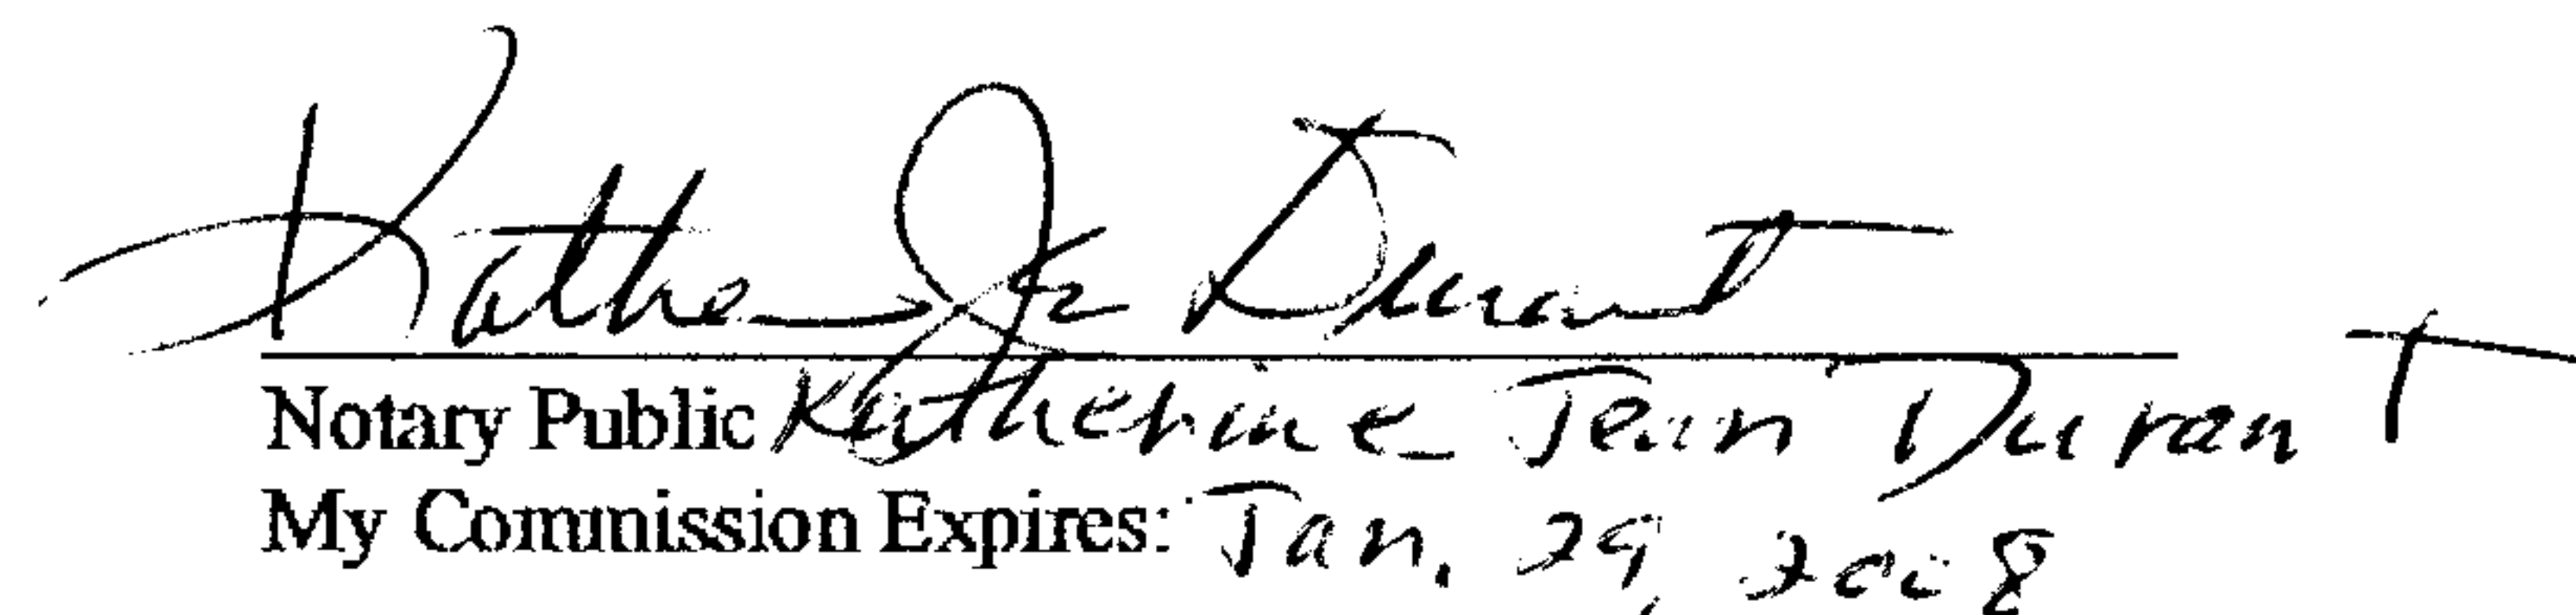 Katherine Durant
Notary Public Katherine Jean Durant
My Commission Expires: Jan. 29, 2008